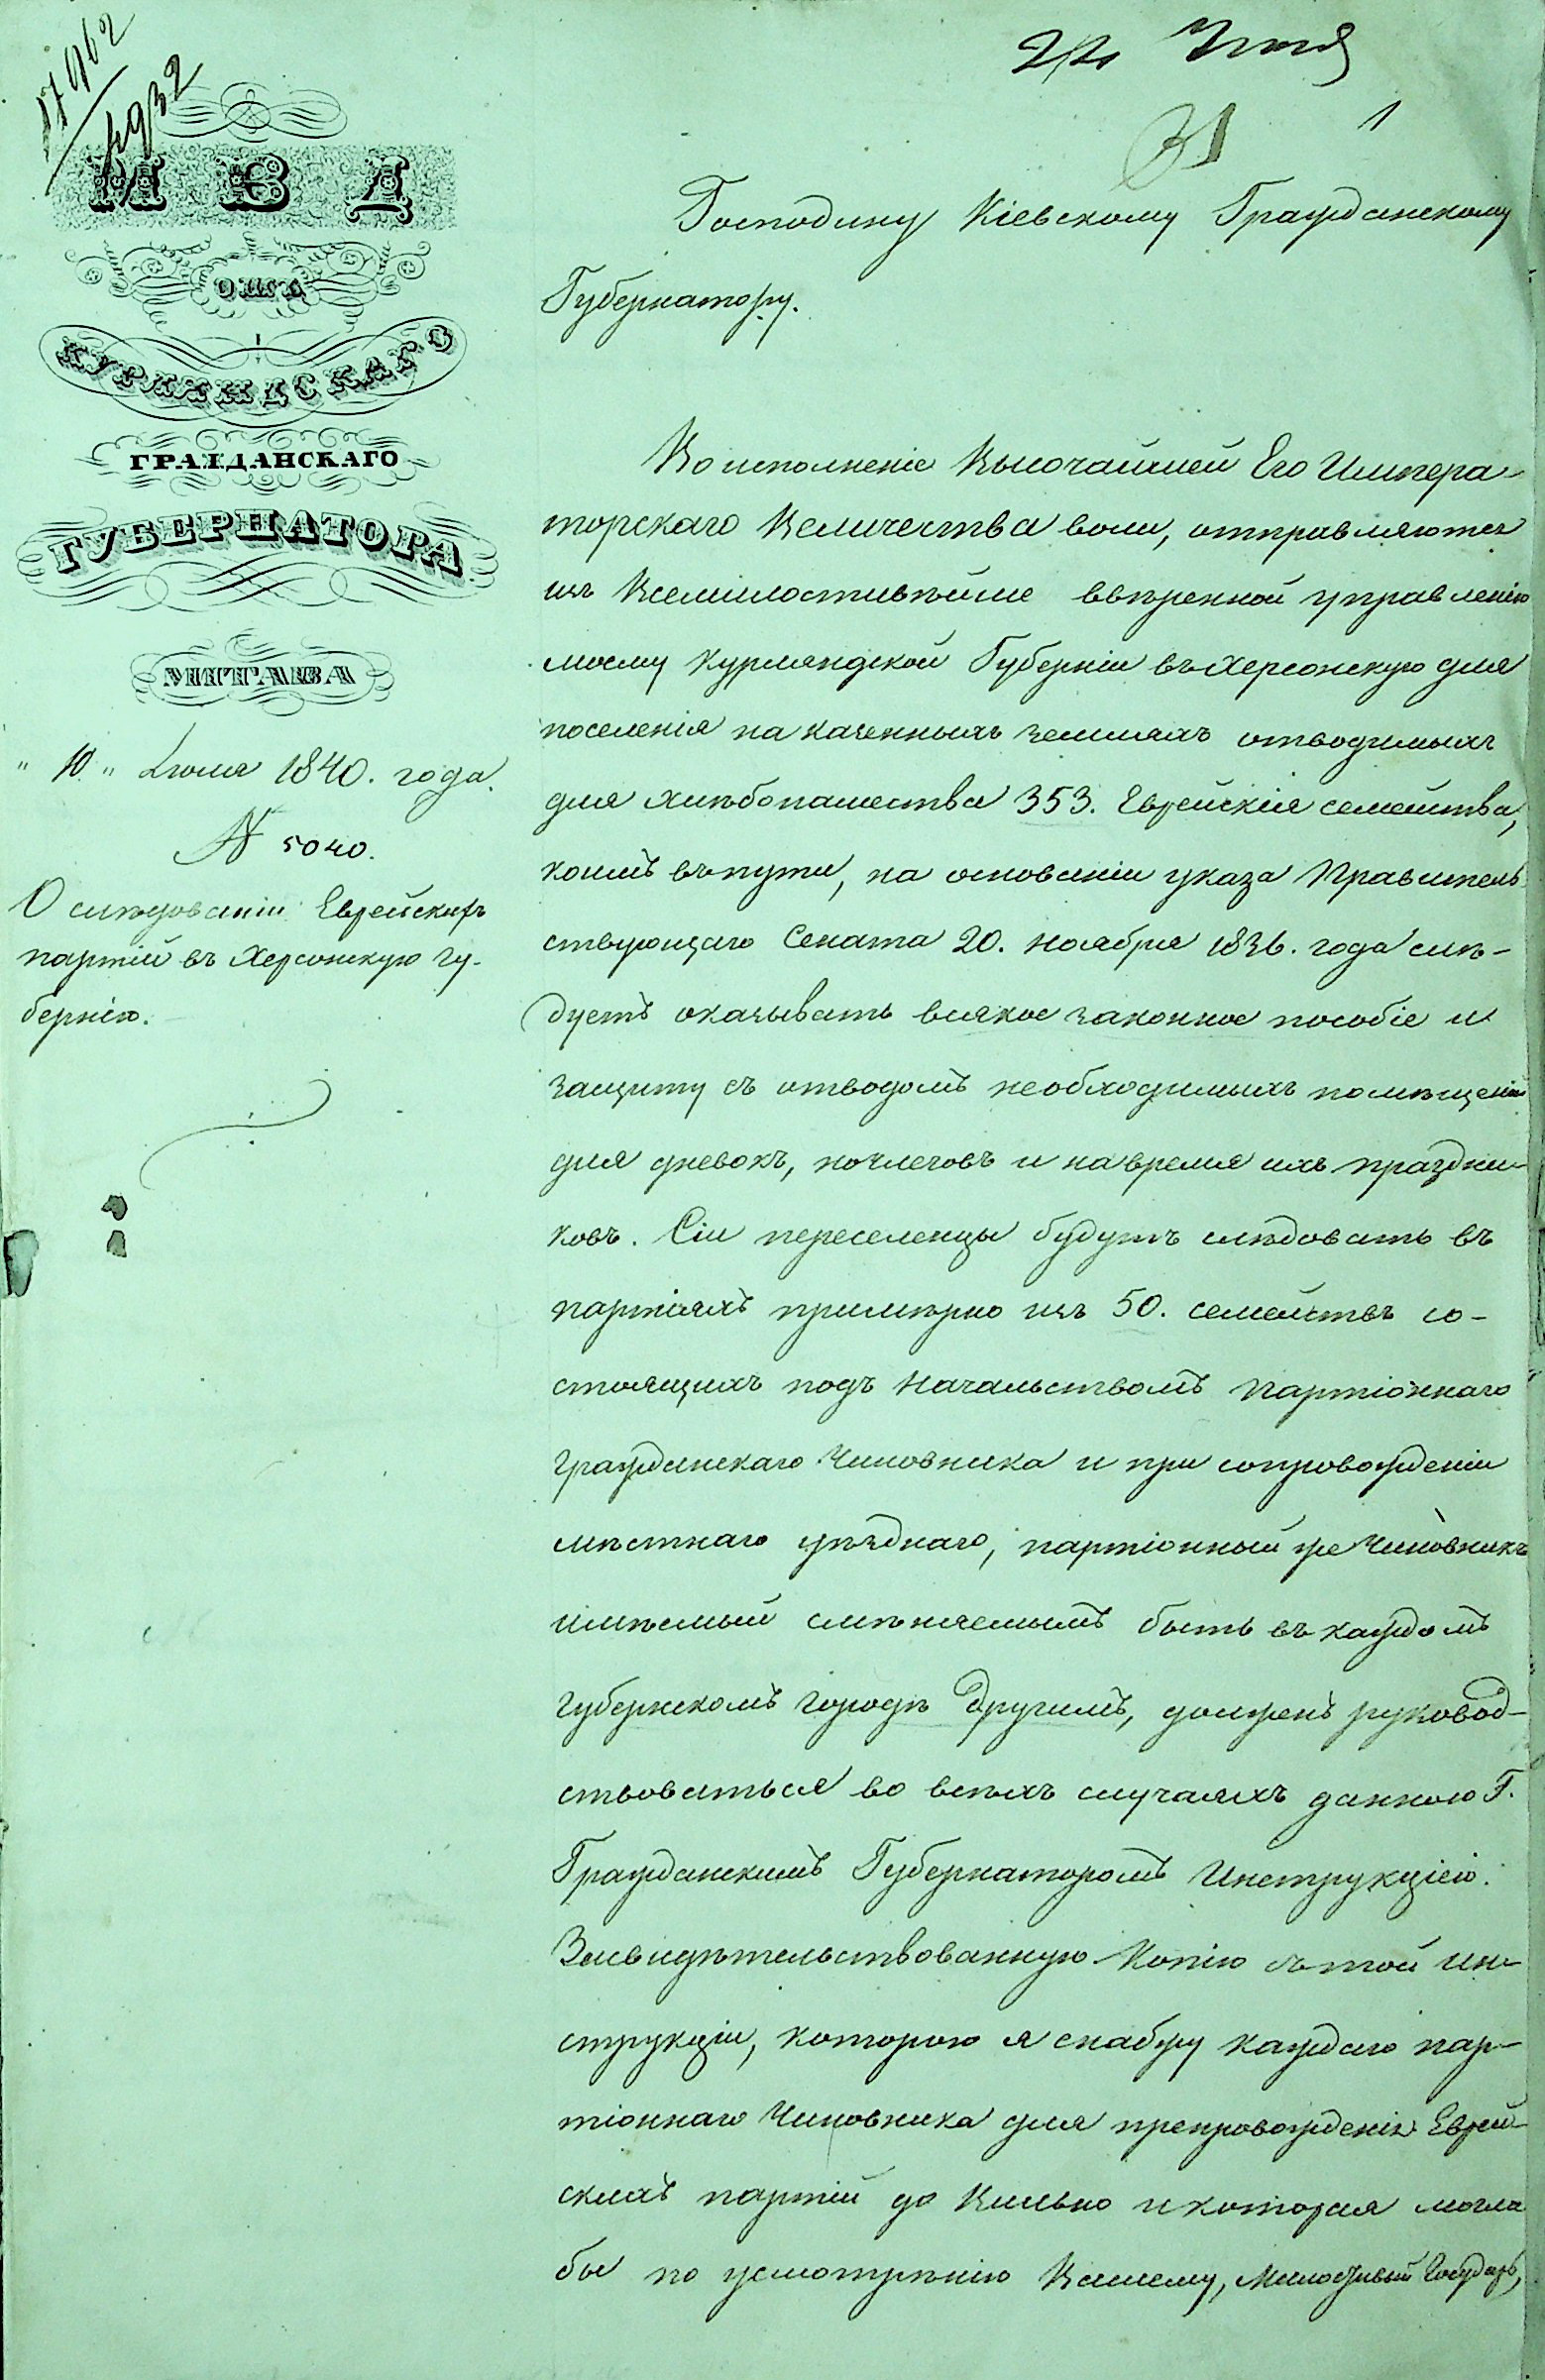 17962
4932
22 Іюля
31
1
М В Д
ОТЪ
КУРЛЯНДСКАГО
ГРАЖДАНСКАГО
ГУБЕРНАТОРА
МИТАВА
" 10 " Іюля 1840. года.
№ 5040.
О слѣдованіи Еврейскихъ
партій въ Херсонскую Гу-
бернію.
Господину Кіевскому Гражданскому
Губернатору.
Во исполненіе Высочайшей Его Импера-
торскаго Величества воли, отправляются
изъ Всемилостивѣйше ввѣренной управленію
моему Курляндской Губерніи въ Херсонскую для
поселенія на казенныхъ земляхъ отводимыхъ
для хлѣбопашества 353. Еврейскія семейства,
коимъ въ пути, на основаніи указа Правитель
ствующаго Сената 20. Ноября 1836. года слѣ-
дуетъ оказывать всякое законное пособіе и
защиту съ отводомъ необходимыхъ помѣщеній
для дневокъ, ночлеговъ и на время ихъ праздни-
ковъ. Сіи переселенцы будутъ слѣдовать въ
партіяхъ примѣрно изъ 50. семействъ со-
стоящихъ подъ начальствомъ партіоннаго
Гражданскаго Чиновника и при сопровожденіи
мѣстнаго уѣзднаго, партіонный же Чиновникъ
имѣемый смѣняемымъ быть въ каждомъ
Губернскомъ городѣ другимъ, долженъ руковод-
ствоваться во всѣхъ случаяхъ данною Г.
Гражданскимъ Губернаторомъ Инструкціею.
Засвидѣтельствованную Копію съ той Ин-
струкціи, которою я снабжу каждаго пар-
тіоннаго Чиновника для препровожденія Еврей-
скихъ партій до Вильно и которая могла
бы по усмотрѣнію Вашему, Милостивый Государь,